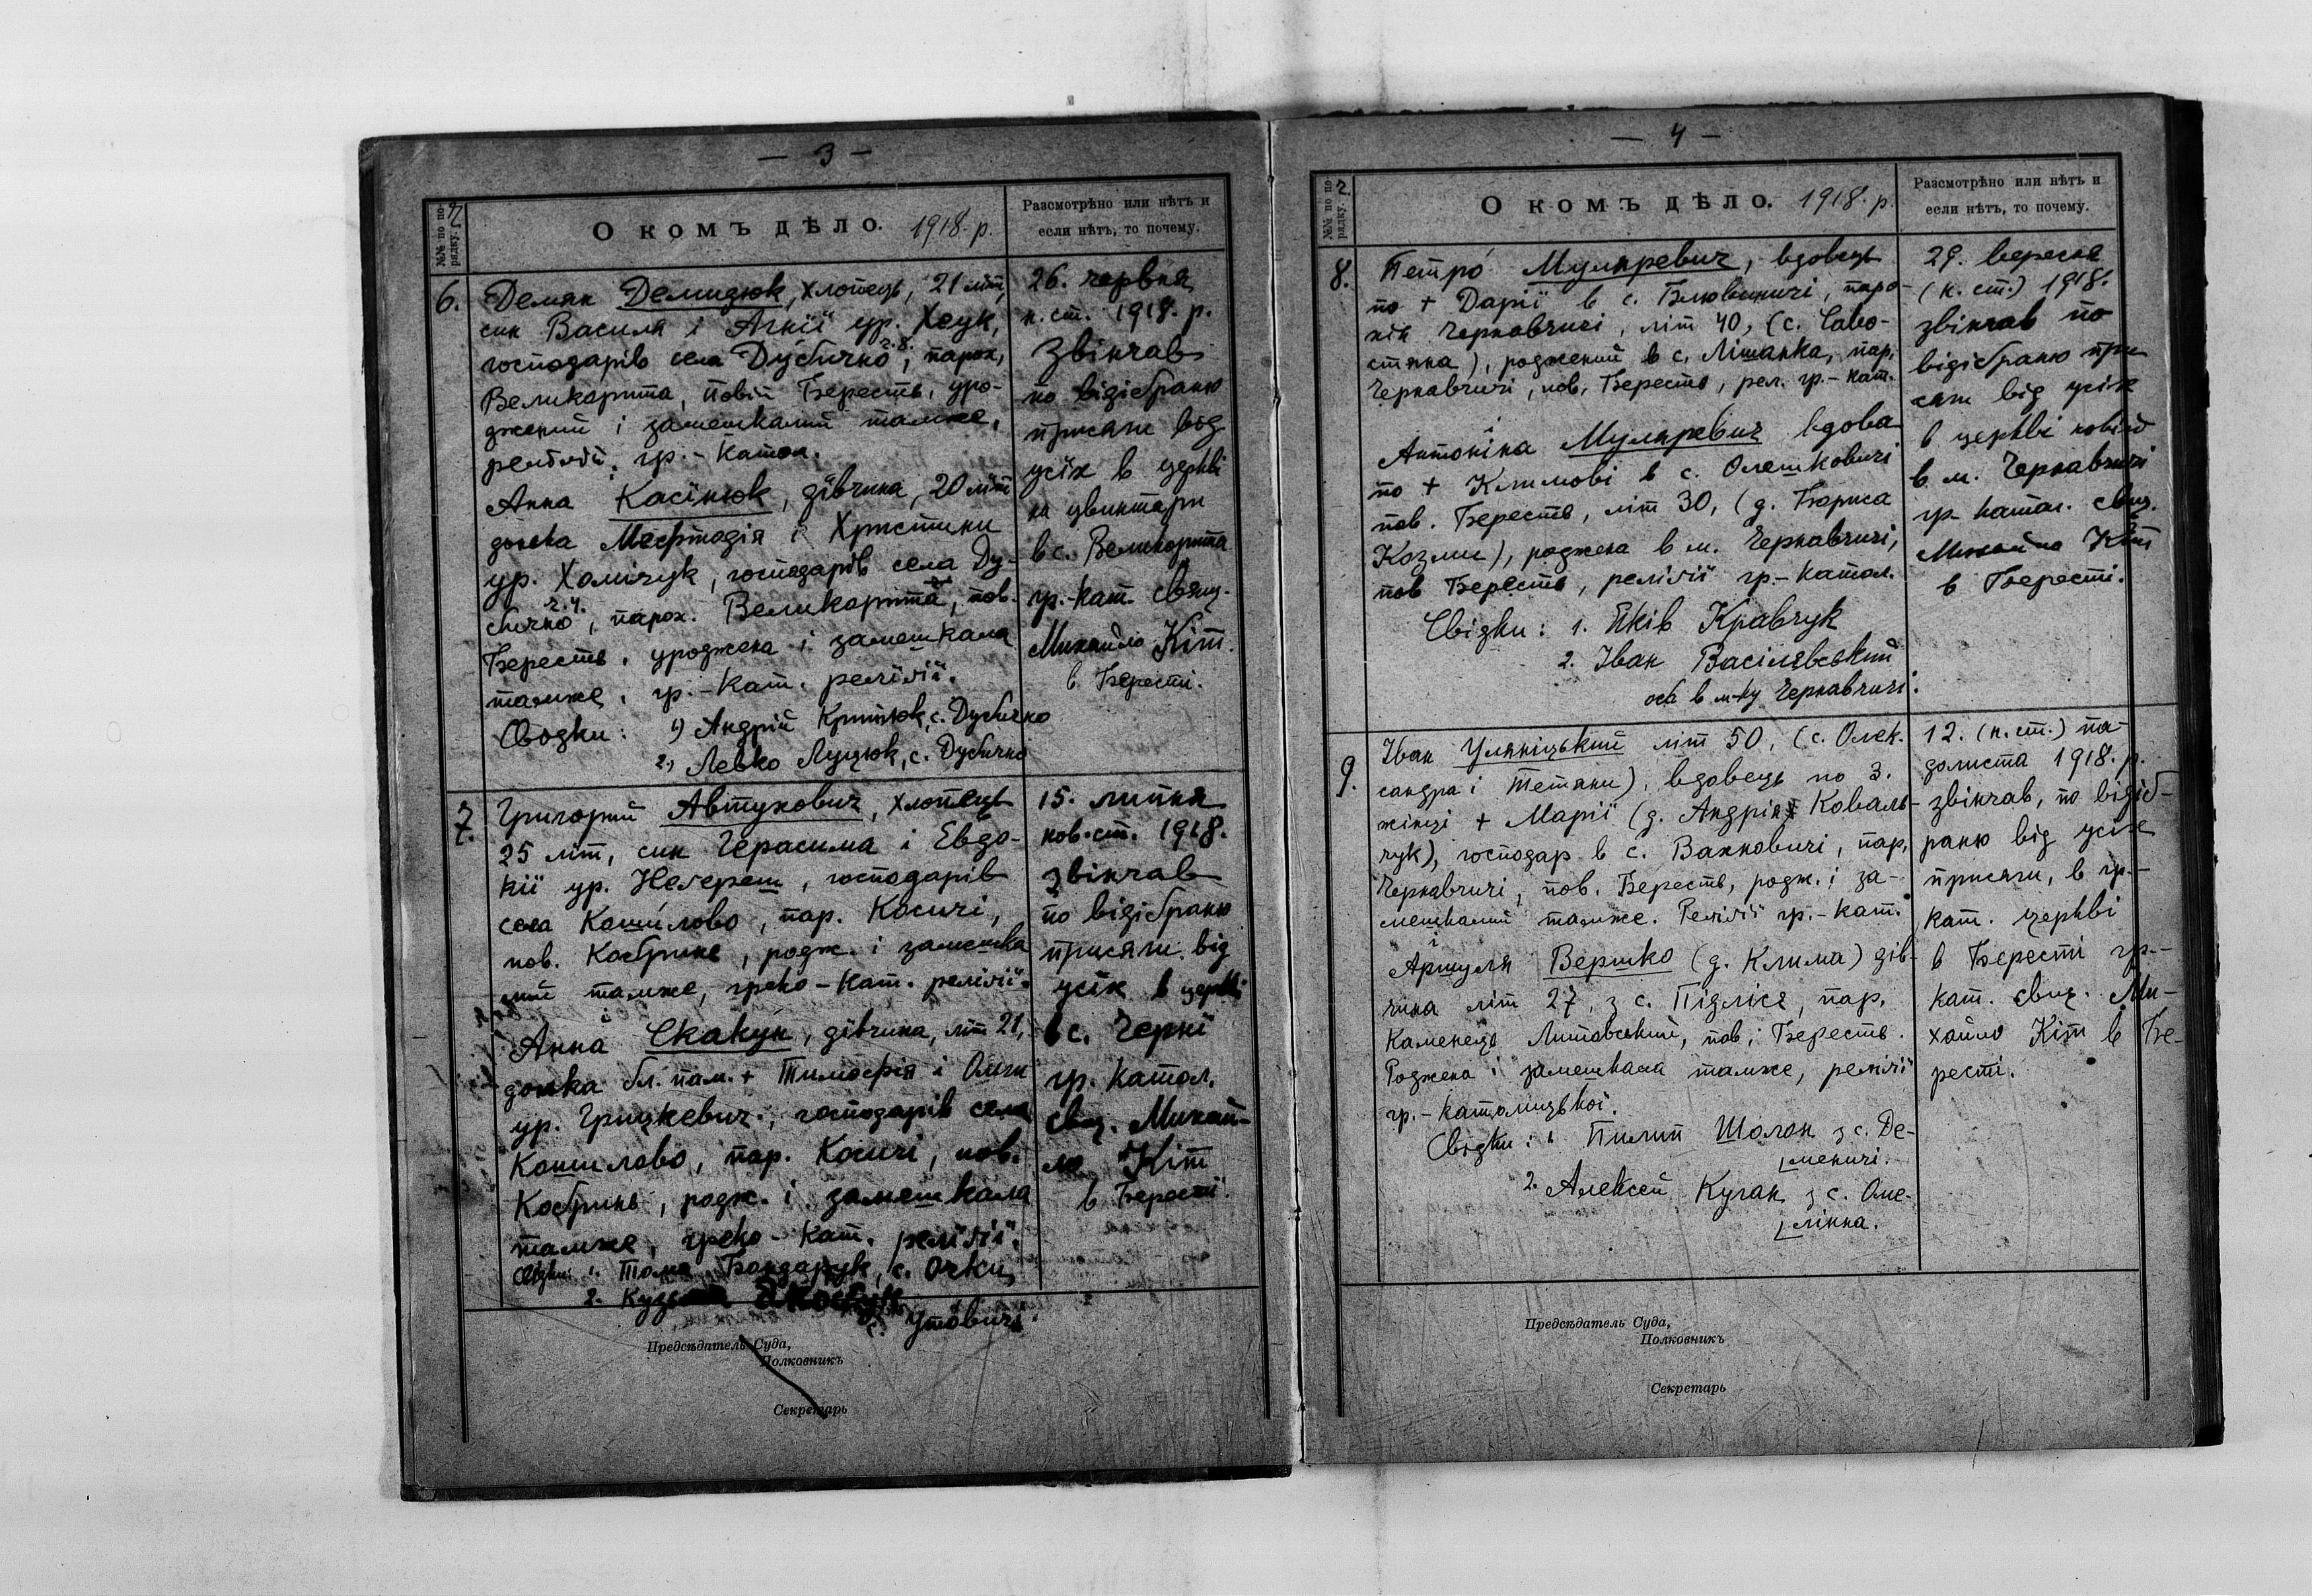 — 3 —
№№ по по-
рядку.
О КОМЪ ДѢЛО. 1918. р.
Разсмотрѣно или нѣтъ и
если нѣтъ, то почему.
6.
Демян Демидюк, хлопець, 21 літ,
син Василя і Агнії ур. Хеук,
господарів села Дубично ч.8., парох,
Великорита, повіт Берестє, уро-
джений і замешкалий тамже,
релігії гр.-катол.
Анна Касінюк, дівчина, 20 літ
донька Мефтодія і Христини
ур. Хомічук, господарів села Ду-
бично ч.4., парох. Великорита, пов.
Берестє, уроджена і замешкала
тамже, гр.-кат. релігії.
Свідки: 1) Андрій Критюк, с. Дубично
2) Левко Луцюк, с. Дубично
26. червня
н. ст. 1918. р.
Звінчав
по відібраню
присяги від
усіх в церкві
на цвинтари
в с. Великорита
гр.-кат. свящ.
Михайло Кіт
в Берестї.
7.
Григорий Автухович, хлопець
25 літ, син Герасима і Евдо-
кії ур. Негереш, господарів
села Кошилово, пар. Косичі,
пов. Кобринь, родж. і замешка
лий тамже, греко-кат. релігії.
і
Анна Скакун, дівчина, літ 21,
донька бл. пам. + Тимофія і Ольги
ур. Грицкевич, господарів села
Кошилово, пар. Косичі, пов.
Кобринь, родж. і замешкала
тамже, греко-кат. релігії.
Свідки: 1. Тома Бондарук, с. Очки,
2. Кузьма
15. липня
нов. ст. 1918.
звінчав
по відібраню
присяги від
усїх в церкві
в с. Черні
гр. катол.
свщ. Михай-
ло Кіт
в Берестї.
Предсѣдатель Суда,
Полковникъ
Секретарь
— 4 —
№№ по по-
рядку.
О КОМЪ ДѢЛО. 1918. р.
Разсмотрѣно или нѣтъ и
если нѣтъ, то почему.
8.
Петро Муляревич, вдовець
по + Дарії в с. Бльовиничі, паро-
хія Чернавчичі, літ 40, (с. Саво-
стяна), роджений в с. Лішанка, пар.
Чернавчичі, пов. Берестє, рел. гр.-кат.
і
Антоніна Муляревич вдова
по + Климові в с. Олешковичі
пов. Берестє, літ 30, (д. Бориса
Козли), роджена в м. Чернавчичі,
пов Берестє, релігії гр.-катол.
Свідки: 1. Яків Кравчук
2. Іван Васілєвський
оба в м-ку Чернавчичі.
29. вересня
(н. ст.) 1918.
звінчав по
відібраню при
сяги від усїх
в церкві новій
в м. Чернавчичі
гр-катол. свщ.
Михайло Кіт
в Берестї.
9.
Іван Уляніцький літ 50, (с. Олек-
сандра і Тетяни), вдовець по 3.
жінці + Марії (д. Андрія Коваль-
чук), господар в с. Вахновичі, пар,
Чернавчичі, пов. Берестє, родж. і за-
мешкалий тамже. Релігії гр.-кат.
і
Аршуля Вершко (д. Клима) дів-
чина літ 27, з с. Підлісє, пар.
Каменець Литовський, пов. Берестє.
Роджена і замешкала тамже, релігії
гр.-католицької.
Свідки: 1. Пилип Шолон з с. Де-
меничі.
2. Алексей Кучан з с. Оме-
лінна.
12. (н. ст.) па-
долиста 1918. р.
звінчав, по відіб-
раню від усїх
присяги, в гр.-
кат. церкві
в Берестї гр.-
кат. свщ. Ми-
хайло Кіт в Бе-
рестї.
Предсѣдатель Суда,
Полковникъ
Секретарь